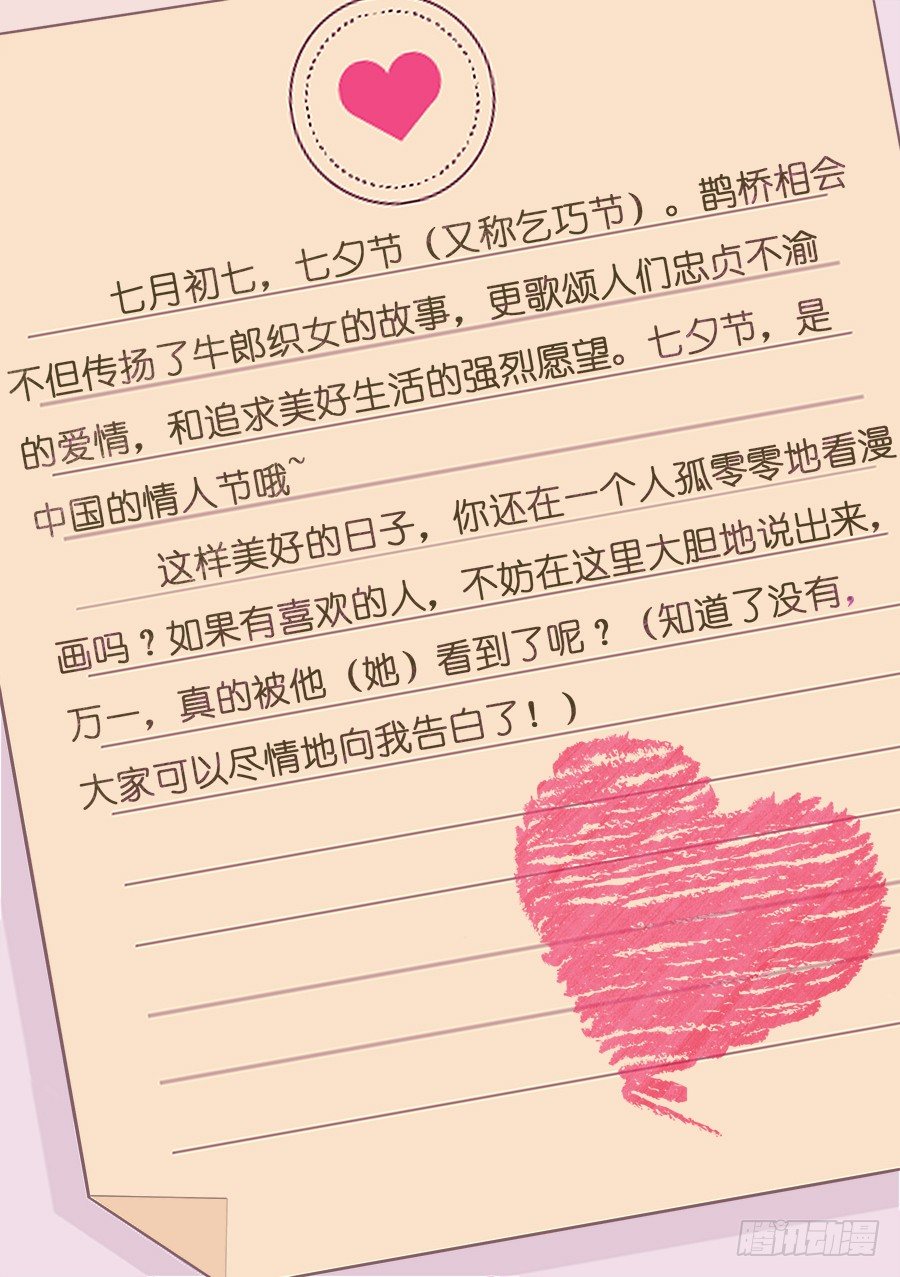 七月初七，七夕节（又称乞巧节）。鹊桥相会
不但传扬了牛郎织女的故事，更歌颂人们忠贞不渝
的爱情，和追求美好生活的强烈愿望。七夕节，是
中国的情人节哦~
这样美好的日子，你还在一个人孤零零地看漫
画吗？如果有喜欢的人，不妨在这里大胆地说出来，
万一，真的被他（她）看到了呢？（知道了没有，
大家可以尽情地向我告白了！）
腾讯动漫